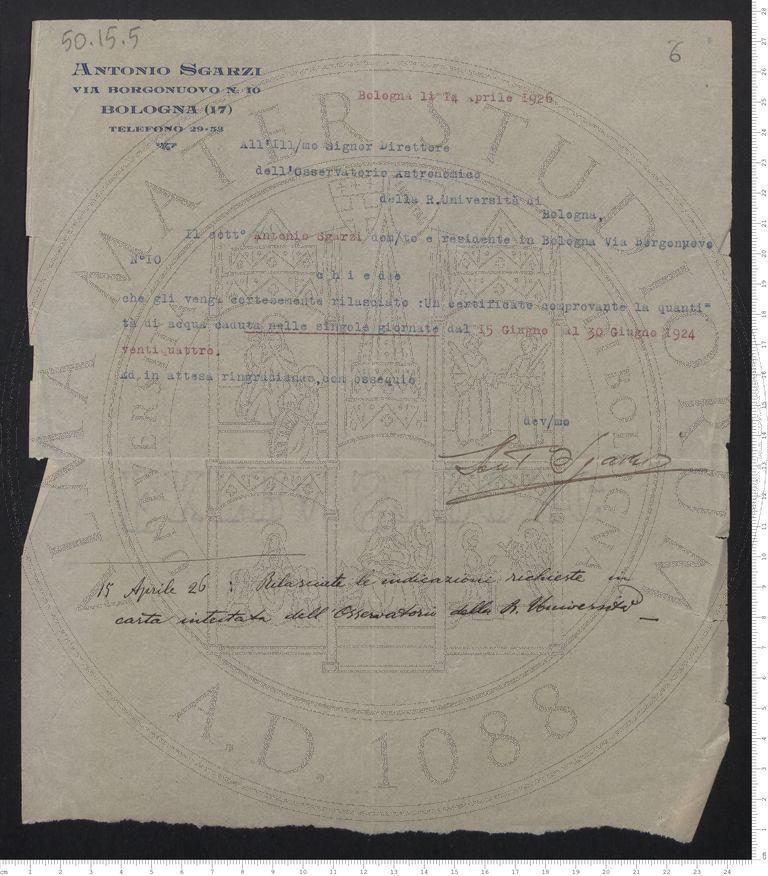 50.15.5
6
ANTONIO SGARZI
VIA BORGONUOVO N. 10
BOLOGNA (17)
TELEFONO 29-53
Bologna li I4 Aprile I926.
All'Ill/mo Signor Direttore
dell'Osservatorio Astronomico
della R.Università di
Bologna,
Il sott° Antonio Sgarzi dom/to e residente in Bologna Via Borgonuovo
N°I0
c h i e d e
che gli venga cortesemente rilasciato :Un certificato comprovante la quanti=
tà di acqua caduta nelle singole giornate dal I5 Giugno al 30 Giugno I924
ventiquattro.
Ed in attesa ringraziando,con ossequio
dev/mo
Ant Sgarzi
15 Aprile 26 : Rilasciate le indicazioni richieste in
carta intestata dell'Osservatorio della R. Università
ALMA MATER STUDIORUM
A.D. 1088